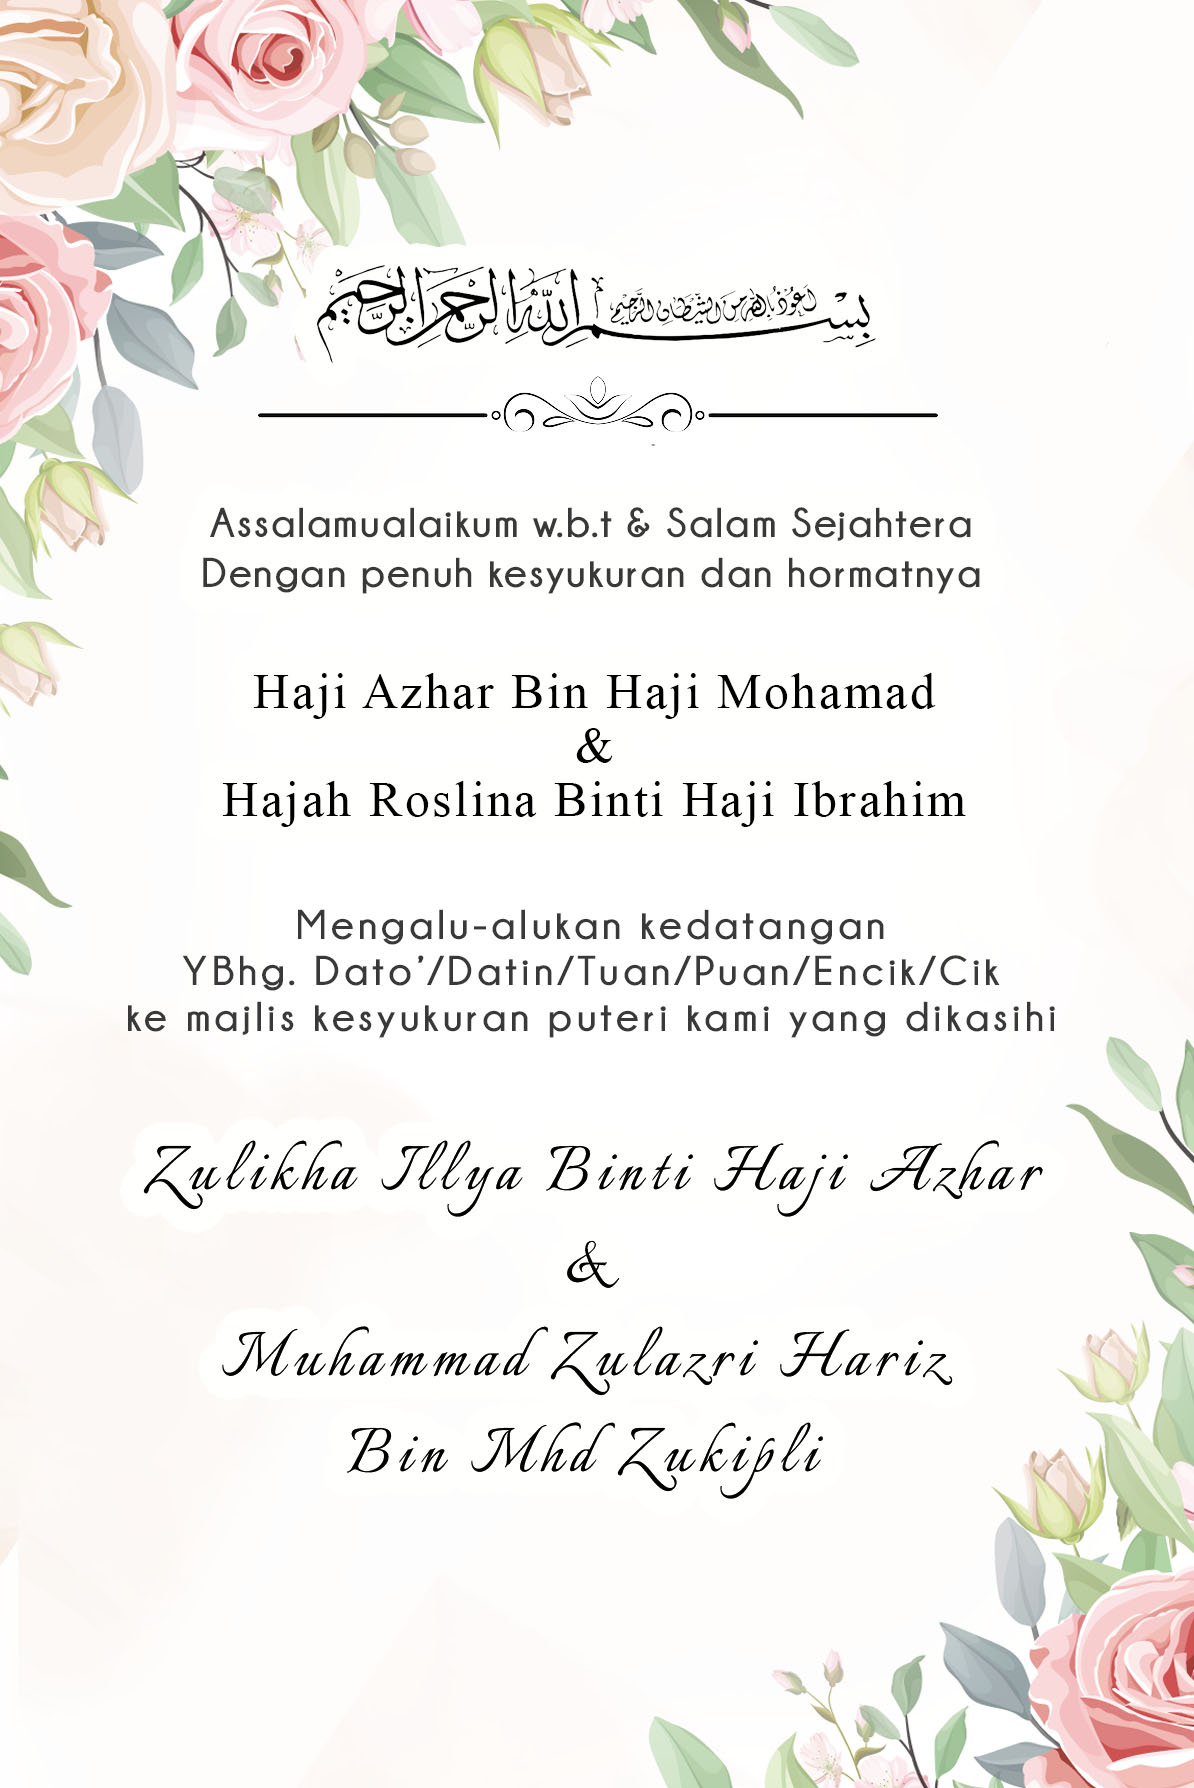 بسم الله الرحمن الرحيم
أعوذ بالله من الشيطان الرجيم
Assalamualaikum w.b.t & Salam Sejahtera
Dengan penuh kesyukuran dan hormatnya
Haji Azhar Bin Haji Mohamad
&
Hajah Roslina Binti Haji Ibrahim
Mengalu-alukan kedatangan
YBhg. Dato'/Datin/Tuan/Puan/Encik/Cik
ke majlis kesyukuran puteri kami yang dikasihi
Zulikha Illya Binti Haji Azhar
&
Muhammad Zulazri Hariz
Bin Mhd Zukipli